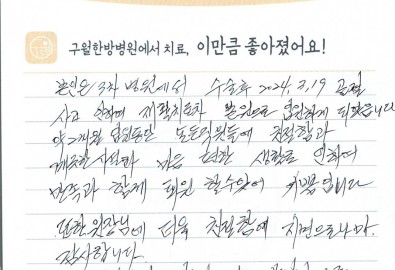 구월한방병원에서 치료, 이만큼 좋아졌어요!
본인은 3차 병원에서 수술후 2024. 3. 19 골절
사고 인하여 재활치료차 본원으로 입원하게 되었습니다
약 2개월 입원동안 모든 직원들에 친절함과
깨끗한 시설과 마음 편한 생활로 인하여
만족과 함께 퇴원 할수있어 기쁨입니다
또한 원장님에 더욱 친절함에 지면으로나마
감사합니다.